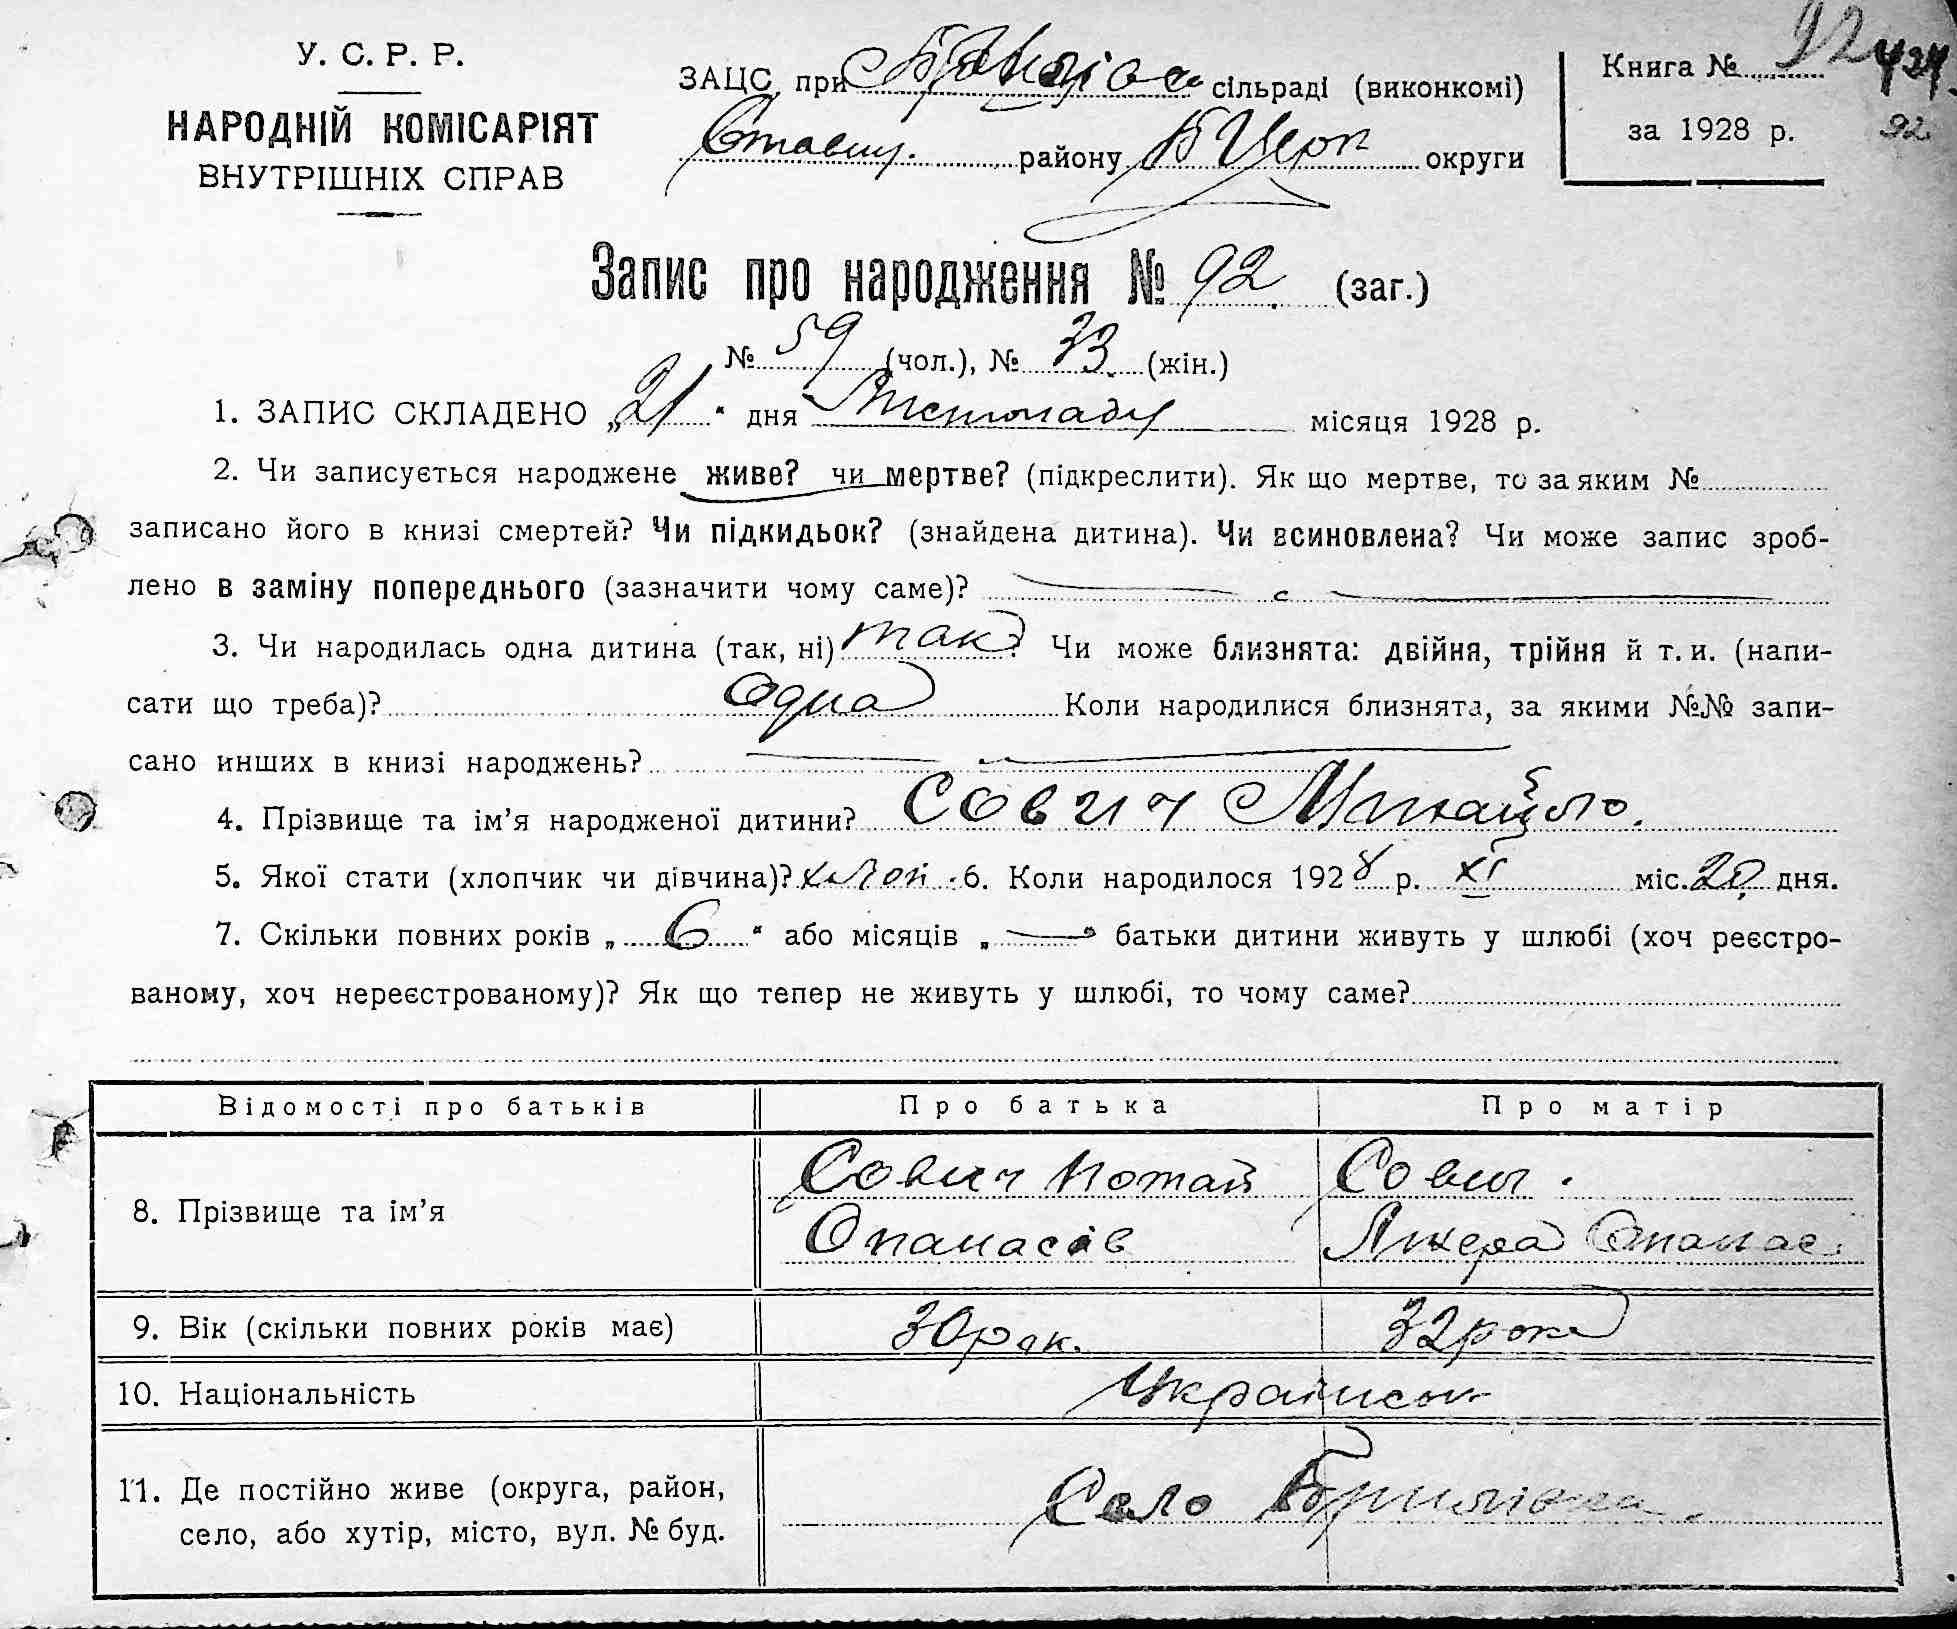 У. С. Р. Р.
НАРОДНІЙ КОМІСАРІЯТ
ВНУТРІШНІХ СПРАВ
ЗАЦС при сільраді (виконкомі)
Ставищ. району Б Церк округи
Книга № 92
424.
за 1928 р.
92
Запис про народження № 92 (заг.)
№ 59 (чол.), № 33 (жін.)
1. ЗАПИС СКЛАДЕНО „21“ дня Листопаду місяця 1928 р.
2. Чи записується народжене живе? чи мертве? (підкреслити). Як що мертве, то за яким №
записано його в книзі смертей? Чи підкидьок? (знайдена дитина). Чи всиновлена? Чи може запис зроб-
лено в заміну попереднього (зазначити чому саме)?
3. Чи народилась одна дитина (так, ні) так? Чи може близнята: двійня, трійня й т. и. (напи-
сати що треба)? Одна Коли народилися близнята, за якими №№ запи-
сано инших в книзі народжень?
4. Прізвище та ім’я народженої дитини? Сович Михайло.
5. Якої стати (хлопчик чи дівчина)? хлоп. 6. Коли народилося 1928 р. XI міс. 20 дня.
7. Скільки повних років „ 6 “ або місяців „ — “ батьки дитини живуть у шлюбі (хоч реєстро-
ваному, хоч нереєстрованому)? Як що тепер не живуть у шлюбі, то чому саме?
Відомості про батьків Про батька Про матір
8. Прізвище та ім’я Сович Потап Сович.
Опанасів Лікера Опанас.
9. Вік (скільки повних років має) 30 рок. 32 рок
10. Національність Українськ
11. Де постійно живе (округа, район,
село, або хутір, місто, вул. № буд. Село Бринівка.